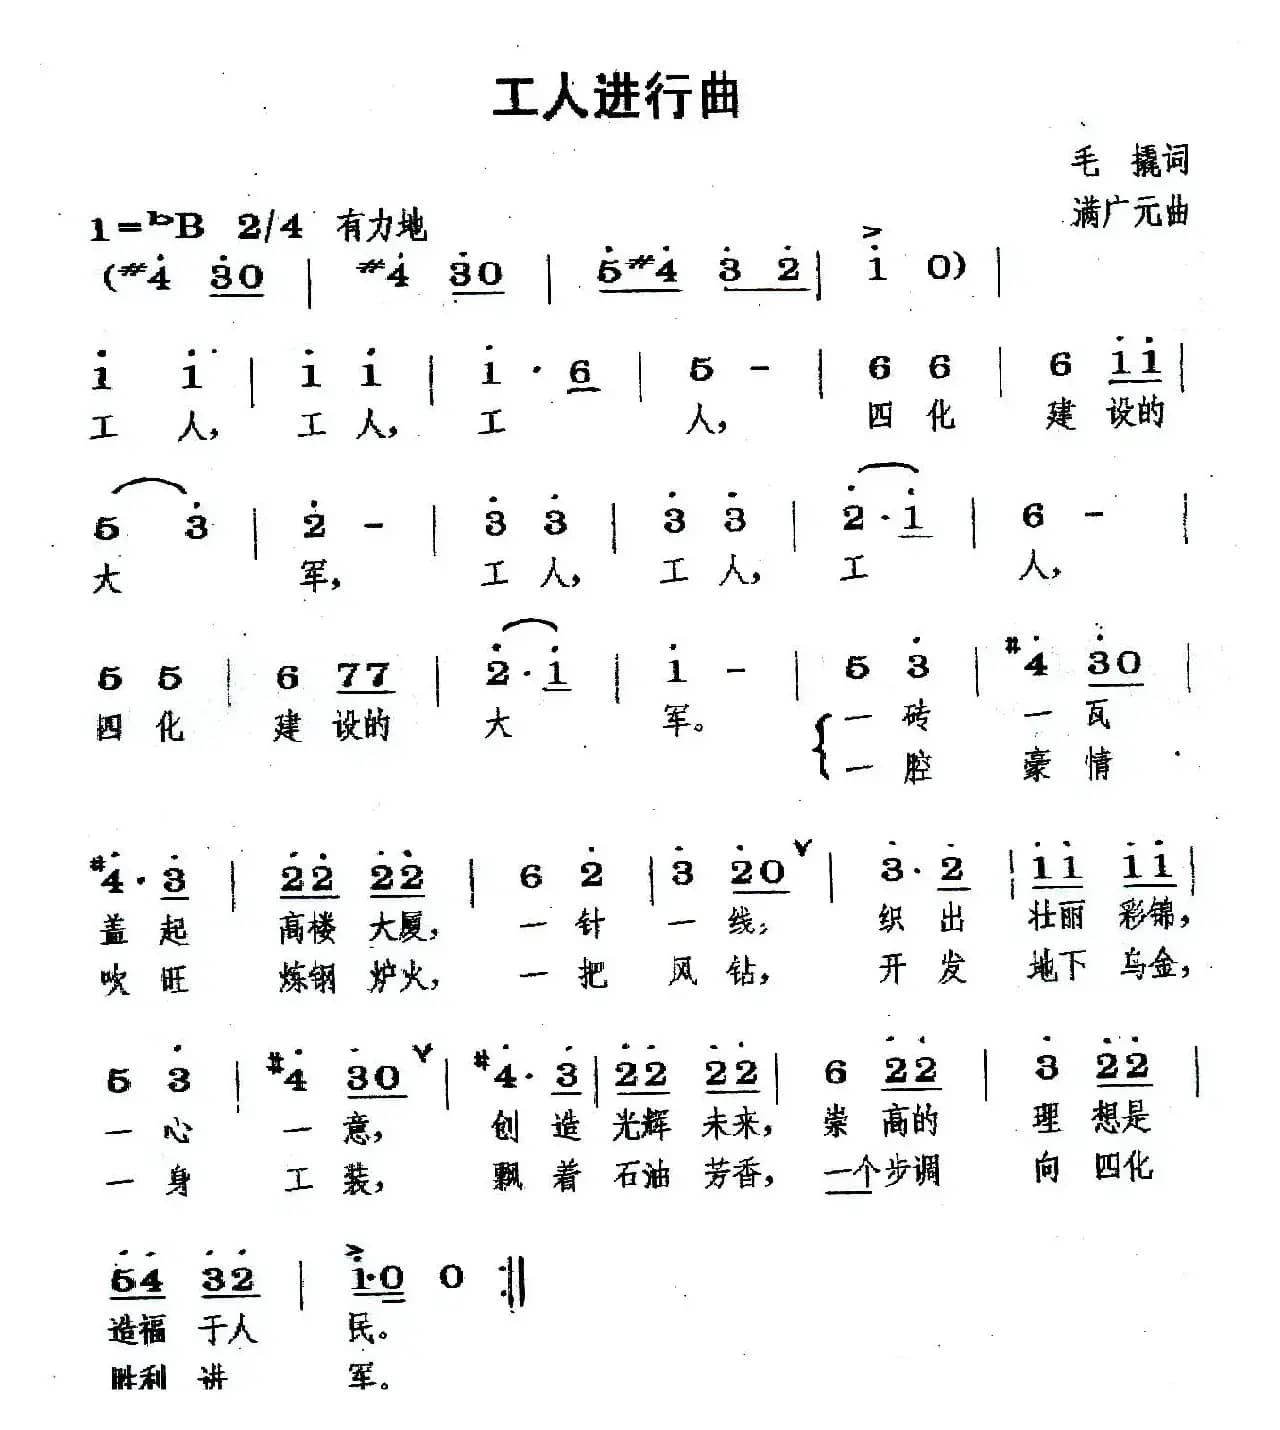 工人进行曲
毛 撬词
1=♭B 2/4 有力地
满广元曲
(#4 30 | #4 30 | 5#4 3 2 | 1 0) |
1 1 | 1 1 | 1 · 6 | 5 - | 6 6 | 6 11 |
工 人, 工 人, 工 人, 四 化 建 设的
5 3 | 2 - | 3 3 | 3 3 | 2 · 1 | 6 - |
大 军, 工 人, 工 人, 工 人,
5 5 | 6 77 | 2 · 1 | 1 - | 5 3 | #4 30 |
四 化 建 设的 大 军。 一 砖 一 瓦
一 腔 豪 情
#4 · 3 | 22 22 | 6 2 | 3 20 | 3 · 2 | 11 11 |
盖 起 高楼 大厦, 一 针 一 线; 织 出 壮丽 彩锦,
吹 旺 炼钢 炉火, 一 把 风 钻, 开 发 地下 乌金,
5 3 | #4 30 | #4 · 3 | 22 22 | 6 22 | 3 22 |
一 心 一 意, 创 造 光辉 未来, 崇 高的 理 想是
一 身 工 装, 飘 着 石油 芳香, 一个 步调 向 四化
54 32 | 1·0 0 :||
造福 于人 民。
胜利 进 军。